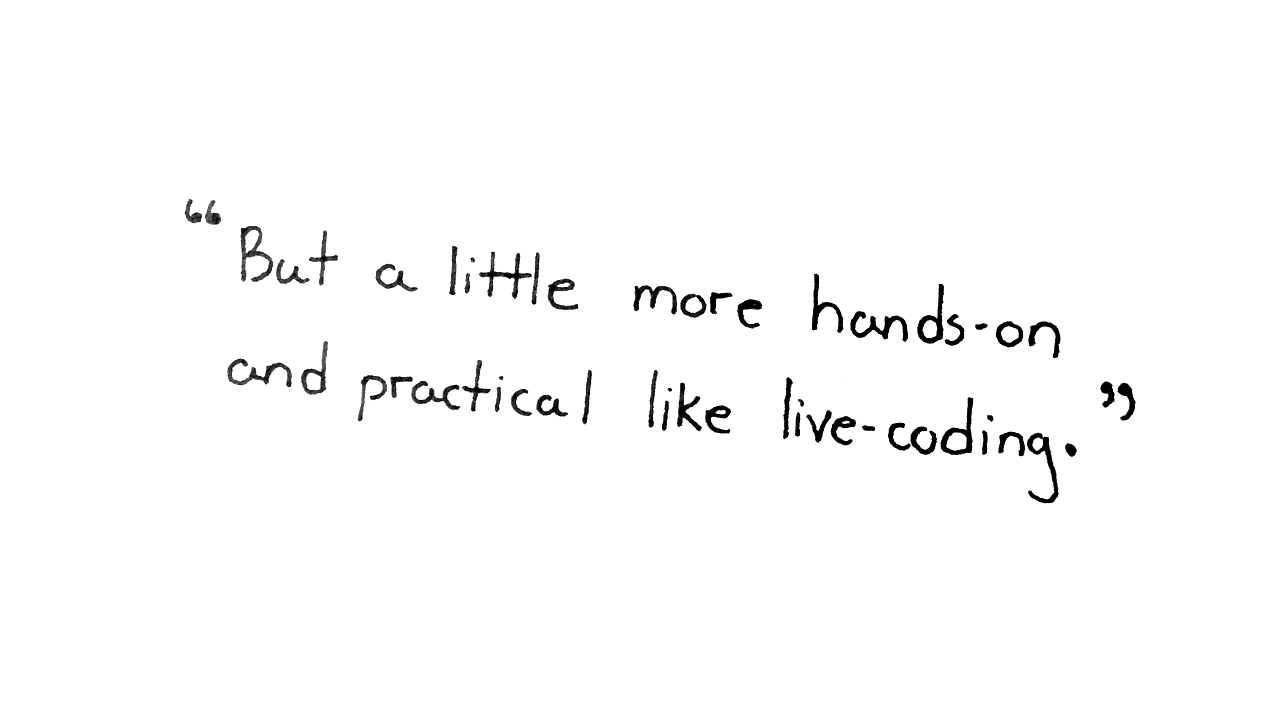 “But a little more hands-on
and practical like live-coding.”